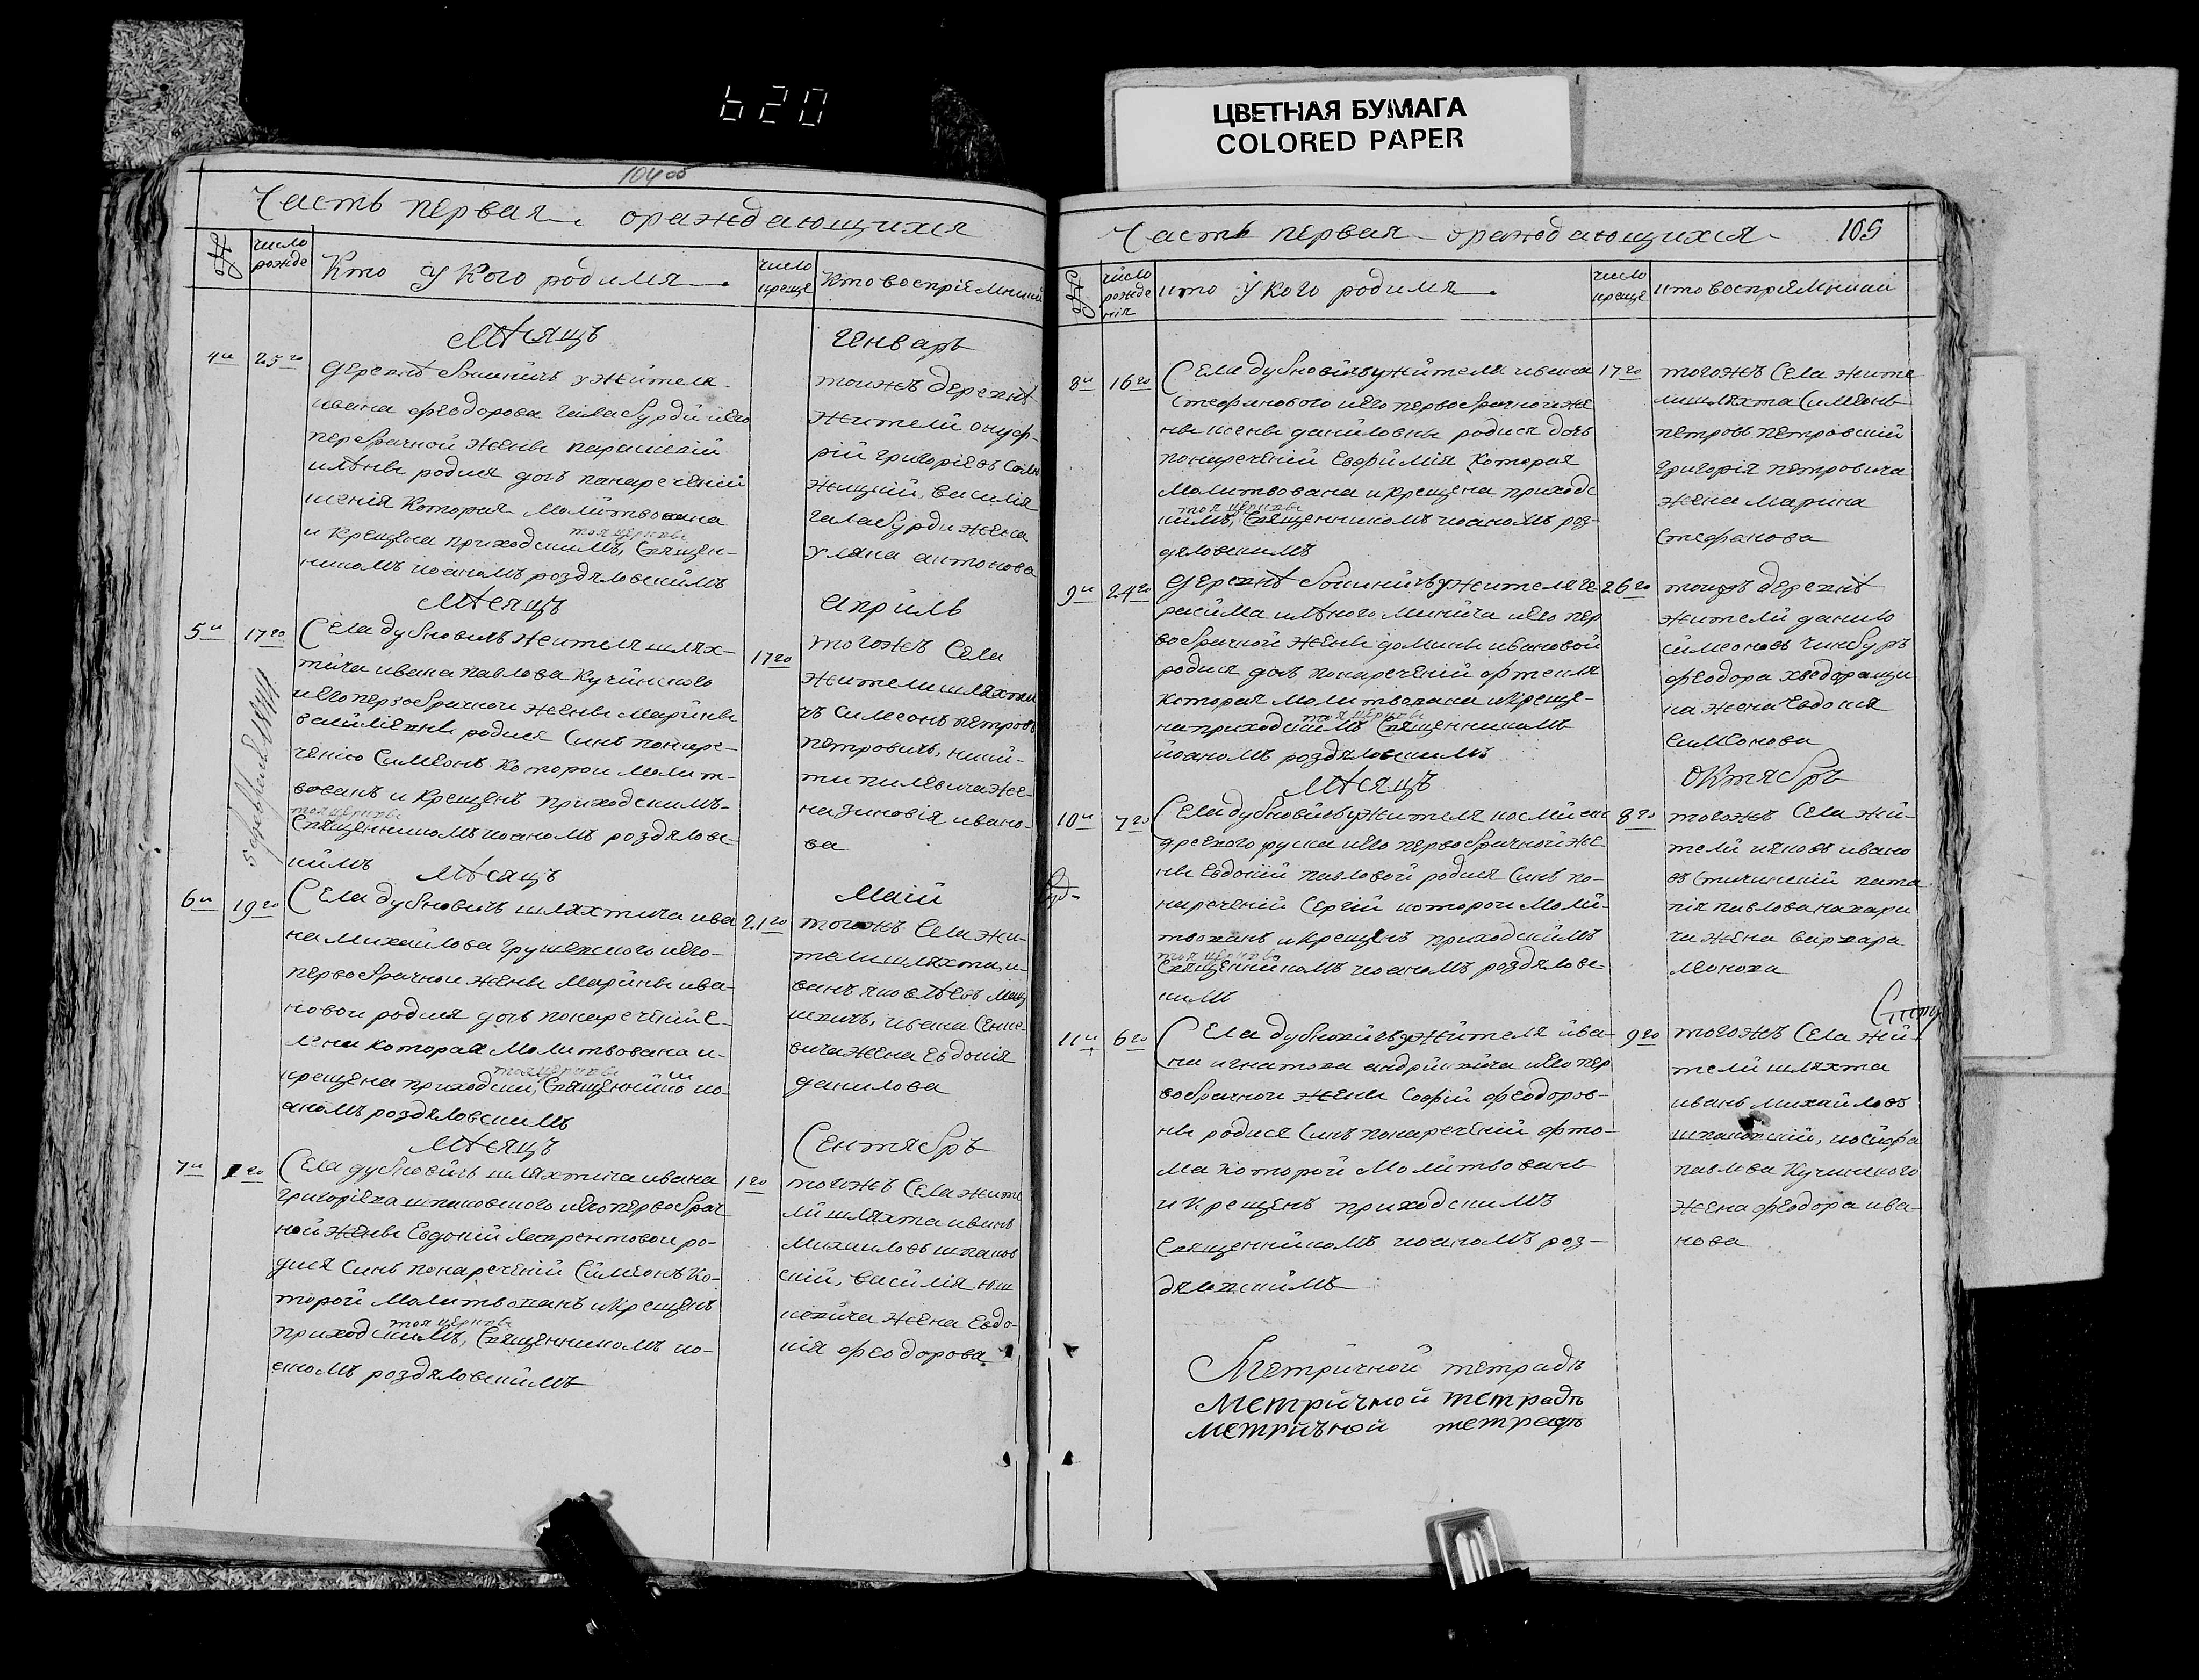 620
ЦВЕТНАЯ БУМАГА
COLORED PAPER
104 об
Часть первая ораждающихся
число
рожде
Кто у кого родился
число
креще
Кто восприемники
Месяцъ
Генварь
4и 25го
деревнѣ жителя
ивана феодорова его
первобрачной жены параскевіи
родися дочъ понареченіи
ксенія которая молитвована
тоя церкве
и крещена приходскимъ, священ-
никомъ иоаномъ роздяловскимъ
тоижъ деревнѣ
жители онуф-
рій григоріевъ
василія
галабурди жена
уляна антонова
Месяцъ
Априль
5и 17го
Села дубновичъ жителя шлях-
тича ивана павлова Кучинского
иего первобрачной жены марины
родися синъ понаре-
ченію Симеонъ которои молит-
вованъ и крещенъ приходскимъ
тоя церкве
священникомъ иоаномъ роздяловс-
кимъ
17го
тогожъ Села
жители шляхти
чъ симеонъ петровъ
петровичъ, ники-
ти жe-
на зиновія ивано-
ва
Месяцъ
Маій
6и 19го
Села дубновичъ шляхтича ива
на михайлова его
первобрачной жены марины ива-
новои родися дочъ понареченіи е-
лена которая молитвована и
тоя церкве
крещена приходским, священнико ио-
аномъ роздяловскимъ
21го
тогожъ Села жи-
тели шляхта, и-
ванъ яковлевъ
ивана сенке-
вича жена Евдокія
данилова
Месяцъ
Сентябръ
7и 1го
Села дубновичъ шляхтича ивана
григоріева шпаковского иего первобрач
ной жены Евдокіи лаврентовои ро-
дися синъ понареченіи Симеонъ ко-
торой молитвованъ и крещенъ
тоя церкве
приходскимъ, священникомъ ио-
аномъ роздяловскимъ
1го
тогожъ Села жите
ли шляхта иванъ
михаиловъ шпаков
скій, василія юш
кевича жена Евдо-
кія феодорова
Часть первая ораждающихся
105
число
рожде
нія
кто у кого родился
число
креще
кто восприемники
8и 16го
Села дубновичъ у жителя ивана
иего первобрачной же
ны ксены даниловны родися дочъ
понареченіи Евфимія которая
молитвована и крещена приходс
тоя церкве
кимъ, священникомъ иоаномъ роз-
дяловскимъ
17го
тогожъ Села жите
ли шляхта Симеонъ
петровъ петровскій
григорія петровича
жена марина
стефанова
9и 24го
деревнѣ у жителя ге
расима иего пер
вобрачной жены домины ивановой
родися дочъ понареченіи
которая молитвована и креще-
тоя церкве
на приходскимъ священникомъ
иоаномъ роздяловскимъ
26го
тоижъ деревнѣ
жители данило
симеоновъ
феодора
жена Евдокія
симеонова
Месяцъ
Октябръ
10и 7го
Села дубновичъ у жителя
иего первобрачной же-
ны Евдокіи павловой родися синъ по-
нареченіи Сергій которои моли-
твованъ и крещенъ приходскимъ
тоя церкве
священникомъ иоаномъ роздяловс
кимъ
8го
тогожъ Села жи-
тели яковъ ивано
въ
павлова
жена варвара
леонова
11и 6го
Села дубновичъ у жителя ива-
на игнатова иего пер
вобрачной жены софіи феодоров-
ны родися синъ понареченіи фто-
ма которой молитвованъ
и крещенъ приходскимъ
священникомъ иоаномъ роз-
дяловскимъ
9го
тогожъ Села жи-
тели шляхта
иванъ михайловъ
шпаковскій, иосифа
павлова Кучинского
жена феодора ива-
нова
Метричной тетрадъ
Метричной тетрадъ
метричной тетрадъ